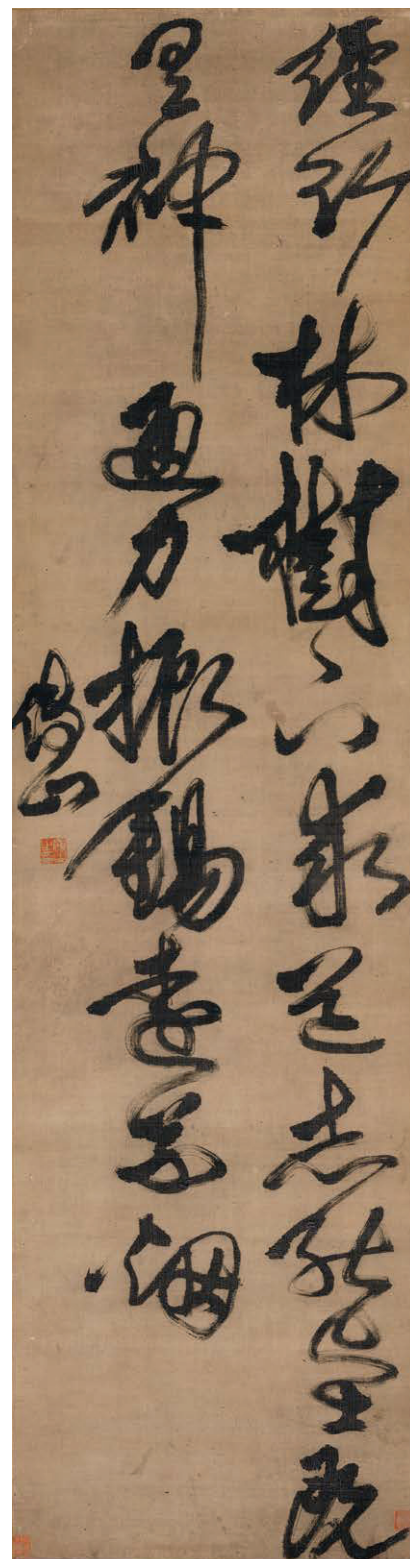 經行林樹下求道志能堅既
具神通力振錫遠烟
傅山